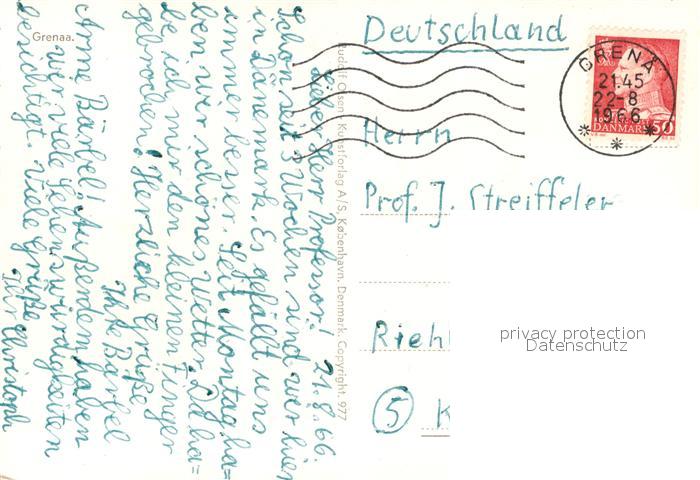 Grenaa.
21.8.66.
Lieber Herr Professor!
Schon seit 3 Wochen sind wir hier
in Dänemark. Es gefällt uns
immer besser. Seit Montag ha=
ben wir schönes Wetter. Da ha=
be ich mir den kleinen Finger
gebrochen. Herzliche Grüße
Ihre Bärbel
Arme Bärbel! Außerdem haben
wir viele Sehenswürdigkeiten
besichtigt. Viele Grüße
Ihr Christoph
Rudolf Olsen, Kunstforlag A/S. København. Denmark. Copyright. 977
Deutschland
GRENÅ
21.45
22-8
1966
DANMARK
50
Herrn
Prof. J. Streiffeler
Riehl
5 K
privacy protection
Datenschutz